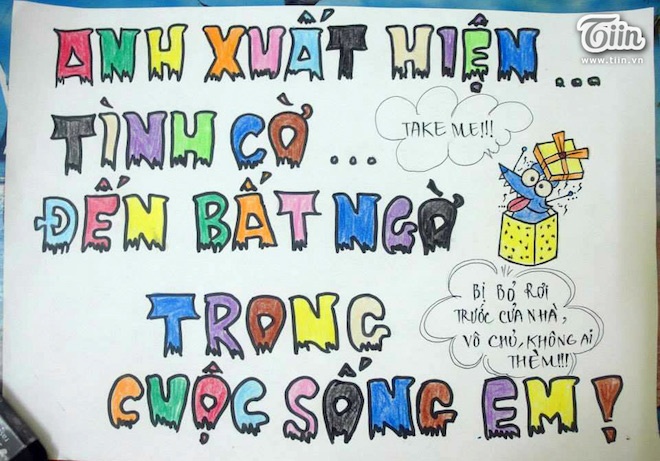 Tiin
www.tiin.vn
ANH XUẤT HIỆN...
TÌNH CỜ...
TAKE ME!!!
ĐẾN BẤT NGỜ
BỊ BỎ RƠI
TRƯỚC CỬA NHÀ,
VÔ CHỦ, KHÔNG AI
THÈM!!!
TRONG
CUỘC SỐNG EM!